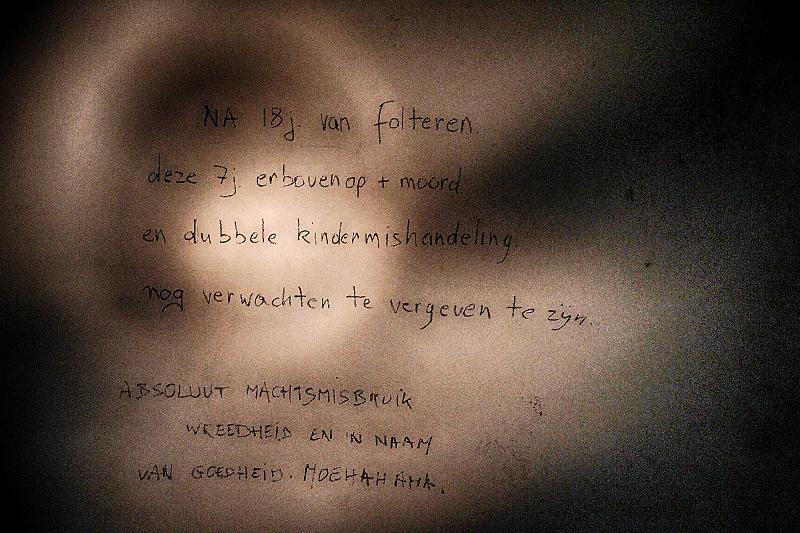 NA 18j. van folteren.
deze 7j. erbovenop + moord
en dubbele kindermishandeling,
nog verwachten te vergeven te zijn.
ABSOLUUT MACHTSMISBRUIK
WREEDHEID EN 'N NAAM
VAN GOEDHEID. MOEHAHAHA.